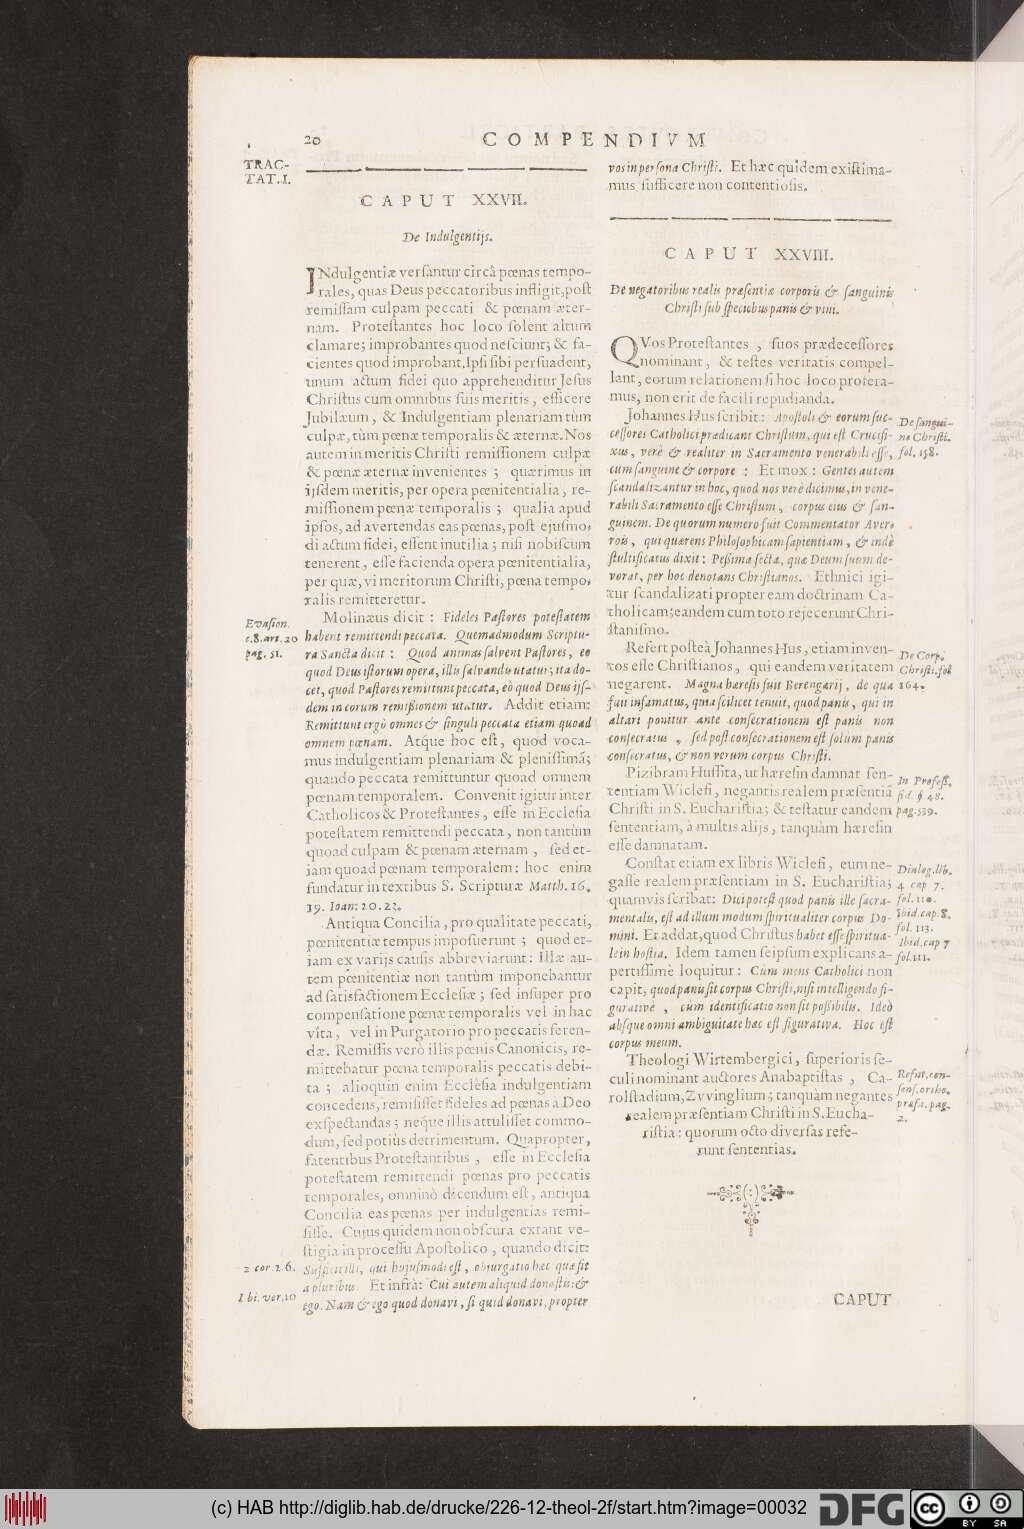 20
COMPENDIVM
TRAC-
TAT. I.
CAPUT XXVII.
De Indulgentijs.
INdulgentiæ versantur circà pœnas tempo-
rales, quas Deus peccatoribus infligit, post
remissam culpam peccati & pœnam æter-
nam. Protestantes hoc loco solent altum
clamare; improbantes quod nesciunt; & fa-
cientes quod improbant, Ipsi sibi persuadent,
unum actum fidei quo apprehenditur Jesus
Christus cum omnibus suis meritis, efficere
Jubilæum, & Indulgentiam plenariam tùm
culpæ, tùm pœnæ temporalis & æternæ. Nos
autem in meritis Christi remissionem culpæ
& pœnæ æternæ invenientes; quærimus in
ijsdem meritis, per opera pœnitentialia, re-
missionem pœnæ temporalis; qualia apud
ipsos, ad avertendas eas pœnas, post ejusmo-
di actum fidei, essent inutilia; nisi nobiscum
tenerent, esse facienda opera pœnitentialia,
per quæ, vi meritorum Christi, pœna tempo-
ralis remitteretur.
Evasion.
c. 8. art. 20
pag. 51.
Molinæus dicit: Fideles Pastores potestatem
habent remittendi peccata. Quemadmodum Scriptu-
ra Sancta dicit: Quod animas salvent Pastores, eo
quod Deus istorum opera, illis salvandis utatur; ita do-
cet, quod Pastores remittunt peccata, eò quod Deus ijs-
dem in eorum remissionem utatur. Addit etiam:
Remittunt ergò omnes & singuli peccata etiam quoad
omnem pœnam. Atque hoc est, quod voca-
mus indulgentiam plenariam & plenissimã;
quando peccata remittuntur quoad omnem
pœnam temporalem. Convenit igitur inter
Catholicos & Protestantes, esse in Ecclesia
potestatem remittendi peccata, non tantùm
quoad culpam & pœnam æternam, sed et-
iam quoad pœnam temporalem: hoc enim
fundatur in textibus S. Scripturæ Matth. 16.
19. Ioan: 20. 23.
Antiqua Concilia, pro qualitate peccati,
pœnitentiæ tempus imposuerunt; quod et-
iam ex varijs causis abbreviarunt: Illæ au-
tem pœnitentiæ non tantùm imponebantur
ad satisfactionem Ecclesiæ; sed insuper pro
compensatione pœnæ temporalis vel in hac
vita, vel in Purgatorio pro peccatis feren-
dæ. Remissis verò illis pœnis Canonicis, re-
mittebatur pœna temporalis peccatis debi-
ta; alioquin enim Ecclesia indulgentiam
concedens, remisisset fideles ad pœnas à Deo
exspectandas; neque illis attulisset commo-
dum, sed potiùs detrimentum. Quapropter,
fatentibus Protestantibus, esse in Ecclesia
potestatem remittendi pœnas pro peccatis
temporales, omninò dicendum est, antiqua
Concilia eas pœnas per indulgentias remi-
sisse. Cujus quidem non obscura extant ve-
stigia in processu Apostolico, quando dicit:
2 cor. 2. 6.
Sufficit illi, qui hujusmodi est, objurgatio hæc quæ fit
à pluribus. Et infrà: Cui autem aliquid donastis: &
Ibi. ver. 10
ego. Nam & ego quod donavi, si quid donavi, propter
vos in persona Christi. Et hæc quidem existima-
mus sufficere non contentiosis.
CAPUT XXVIII.
De negatoribus realis præsentiæ corporis & sanguinis
Christi sub speciebus panis & vini.
QVos Protestantes, suos prædecessores
nominant, & testes veritatis compel-
lant, eorum relationem si hoc loco profera-
mus, non erit de facili repudianda.
Johannes Hus scribit: Apostoli & eorum suc-
cessores Catholici prædicant Christum, qui est Crucifi-
xus, verè & realiter in Sacramento venerabili esse,
cum sanguine & corpore: Et mox: Gentes autem
scandalizantur in hoc, quod nos verè dicimus, in vene-
rabili Sacramento esse Christum, corpus eius & san-
guinem. De quorum numero fuit Commentator Aver-
rois, qui quærens Philosophicam sapientiam, & indè
stultificatus dixit: Pessima secta, quæ Deum suum de-
vorat, per hoc denotans Christianos. Ethnici igi-
tur scandalizati propter eam doctrinam Ca-
tholicam; eandem cum toto rejecerunt Chri-
stianismo.
De sangui-
ne Christi.
fol. 158.
Refert posteà Johannes Hus, etiam inven-
tos esse Christianos, qui eandem veritatem
negarent. Magna hæresis fuit Berengarij, de qua
fuit infamatus, quia scilicet tenuit, quod panis, qui in
altari ponitur ante consecrationem est panis non
consecratus, sed post consecrationem est solum panis
consecratus, & non verum corpus Christi.
De Corp.
Christi. fol
164.
Pizibram Hussita, ut hæresin damnat sen-
tentiam Wiclefi, negantis realem præsentiã
Christi in S. Eucharistia; & testatur eandem
sententiam, à multis alijs, tanquàm hæresin
esse damnatam.
In Profess.
fid. § 48.
pag. 539.
Constat etiam ex libris Wiclefi, eum ne-
gasse realem præsentiam in S. Eucharistia;
quamvis scribat: Dici potest quod panis ille sacra-
mentalis, est ad illum modum spiritualiter corpus Do-
mini. Et addat, quod Christus habet esse spiritua-
le in hostia. Idem tamen seipsum explicans a-
pertissimè loquitur: Cùm mens Catholici non
capit, quod panis sit corpus Christi, nisi intelligendo fi-
gurativè, cùm identificatio non sit possibilis. Ideò
absque omni ambiguitate hæc est figurativa. Hoc est
corpus meum.
Dialog. lib.
4 cap 7.
fol. 110.
Ibid. cap. 8.
fol. 113.
Ibid. cap 7
fol. 111.
Theologi Wirtembergici, superioris se-
culi nominant auctores Anabaptistas, Ca-
rolstadium, Zvvinglium; tanquàm negantes
realem præsentiam Christi in S. Eucha-
ristia: quorum octo diversas refe-
runt sententias.
Refut. con-
sens. ortho.
præfa. pag.
2.
CAPUT
(c) HAB http://diglib.hab.de/drucke/226-12-theol-2f/start.htm?image=00032
DFG
cc
BY SA